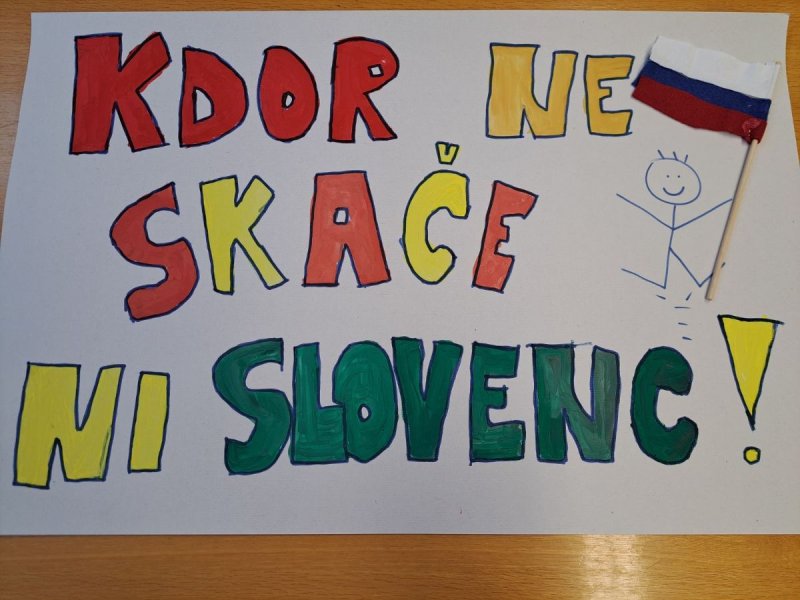 KDOR NE
SKAČE
NI SLOVENC!